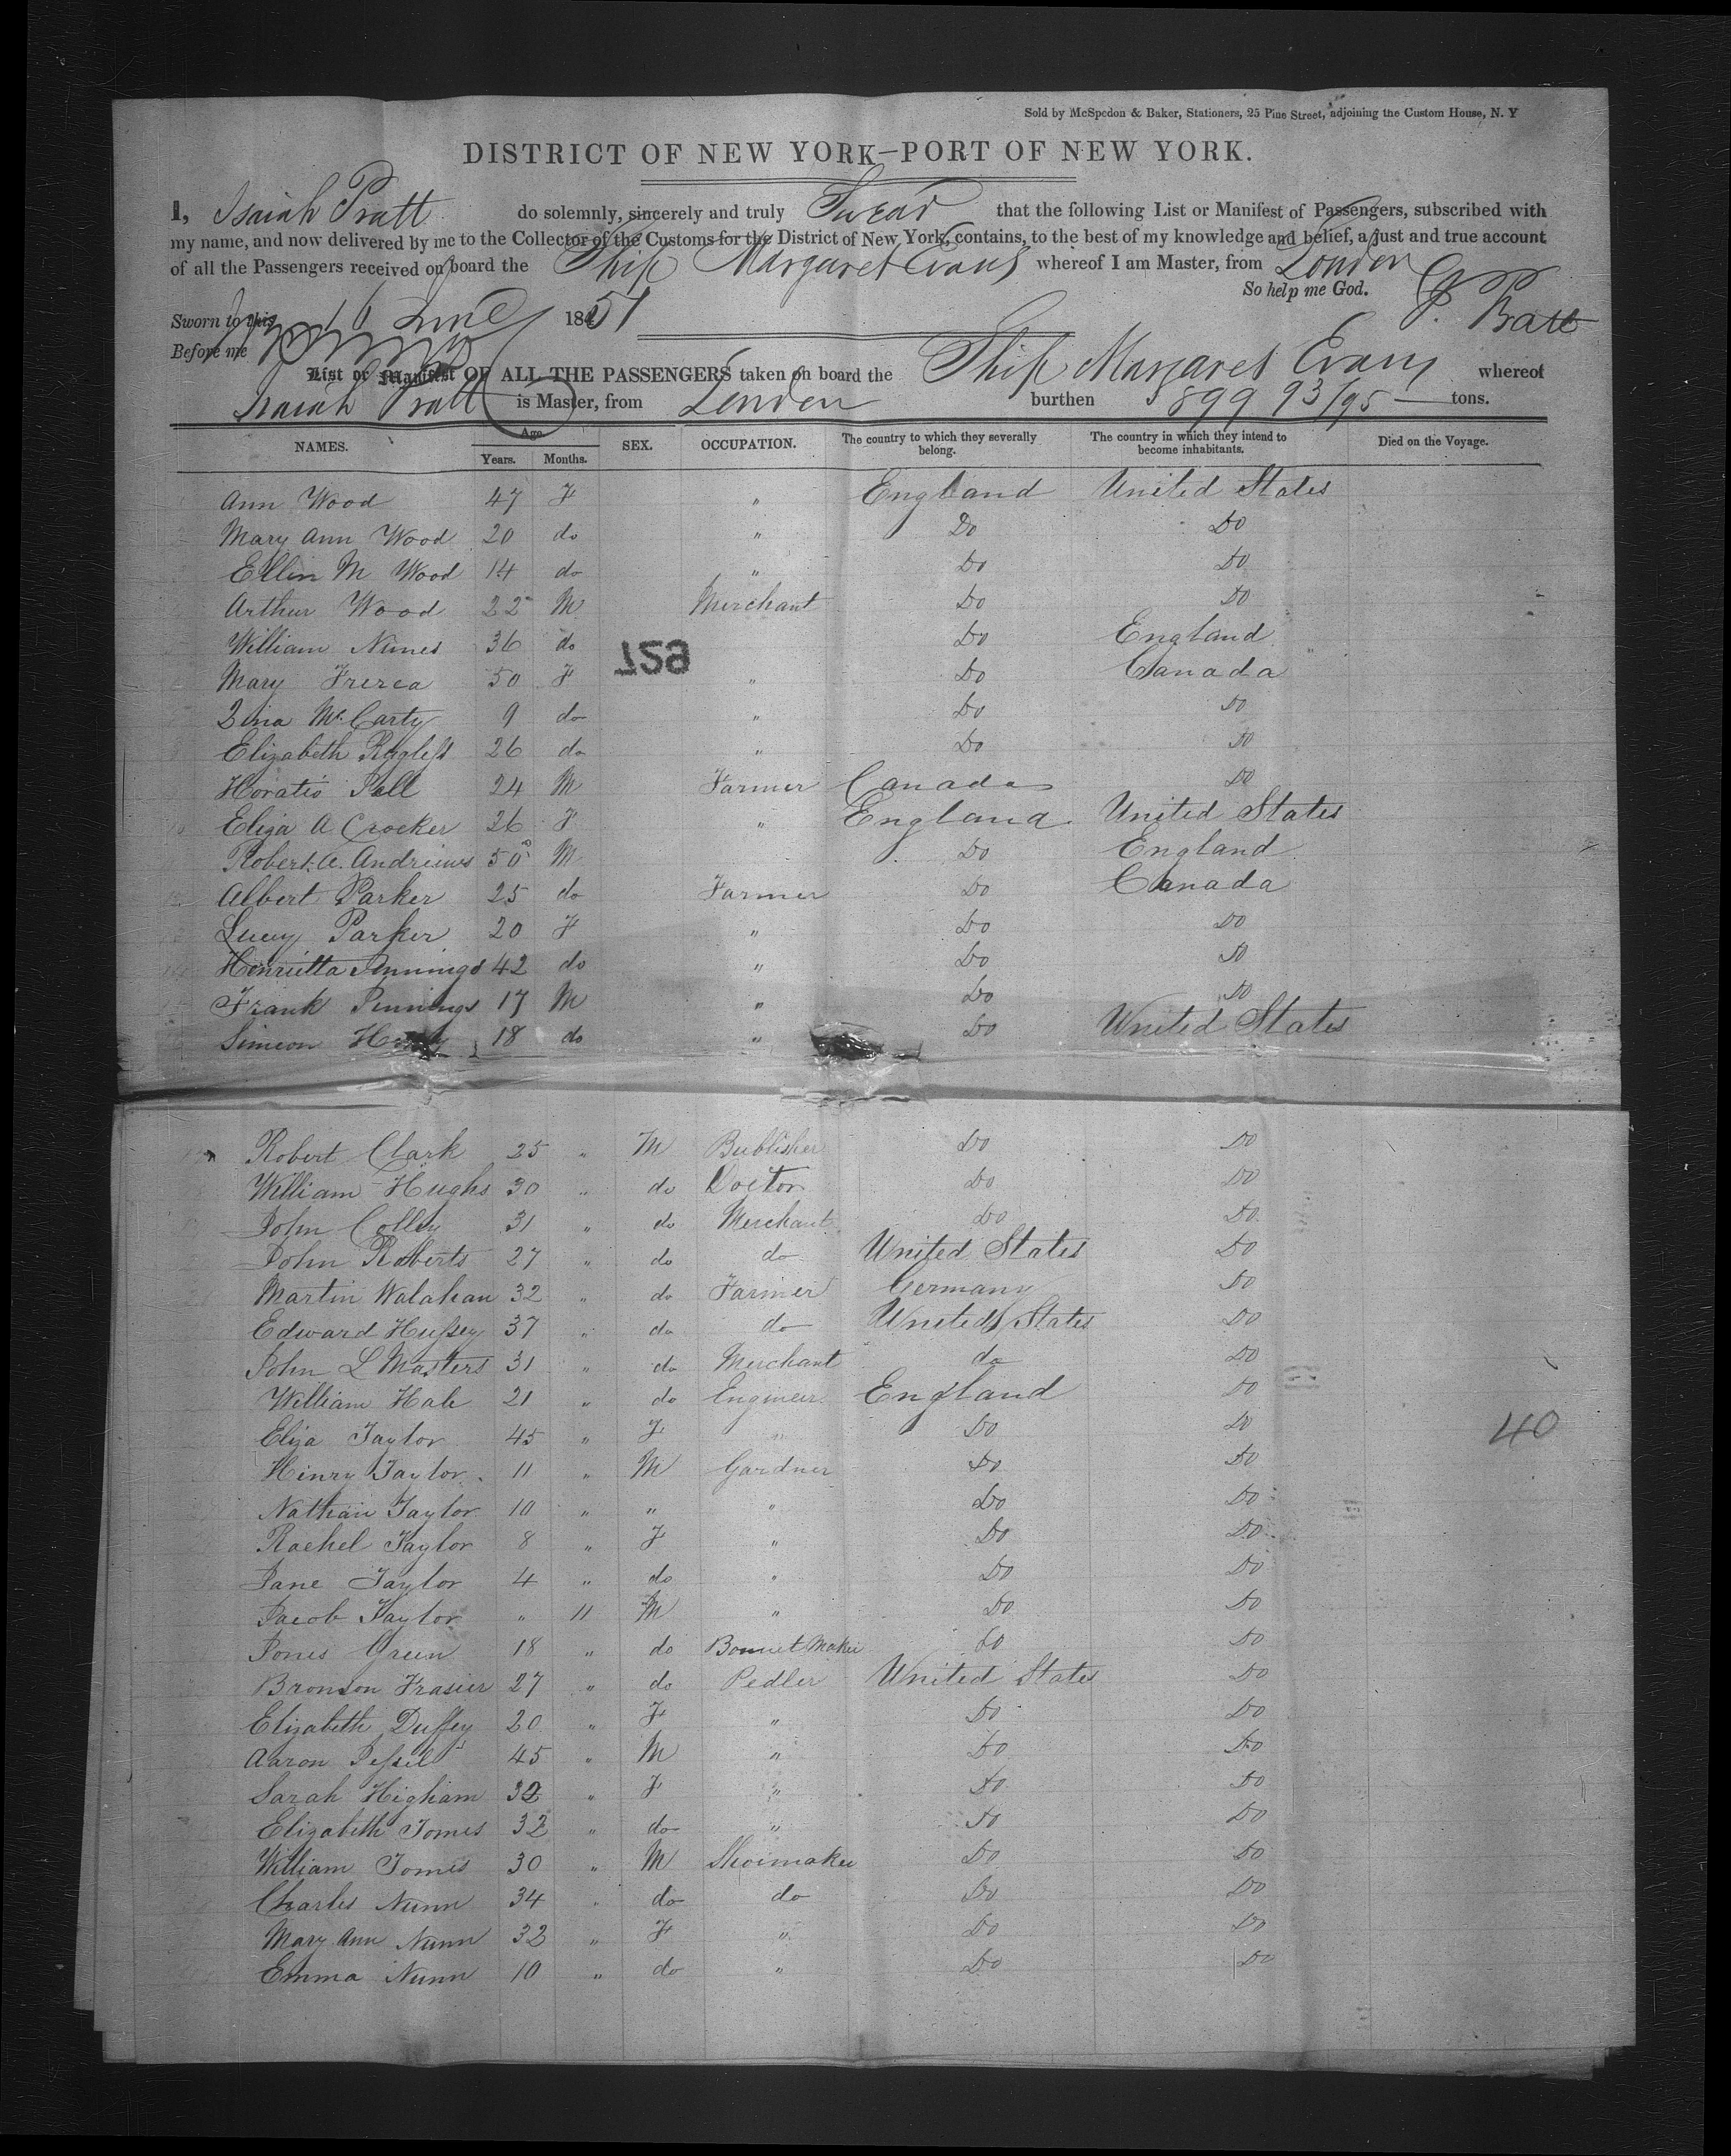 Sold by McSpedon & Baker, Stationers, 25 Pine Street, adjoining the Custom House, N. Y
DISTRICT OF NEW YORK—PORT OF NEW YORK.
I, Isaiah Pratt do solemnly, sincerely and truly Swear that the following List or Manifest of Passengers, subscribed with
my name, and now delivered by me to the Collector of the Customs for the District of New York, contains, to the best of my knowledge and belief, a just and true account
of all the Passengers received on board the Ship Margaret Evans whereof I am Master, from London
So help me God. I. Pratt
Sworn to this 16 June 1851
Before me
List or Manifest OF ALL THE PASSENGERS taken on board the Ship Margaret Evans whereof
Isaiah Pratt is Master, from London burthen 899 93/95 tons.
NAMES. Age. Years. Months. SEX. OCCUPATION. The country to which they severally belong. The country in which they intend to become inhabitants. Died on the Voyage.
Ann Wood 47 F " England United States
Mary Ann Wood 20 do " Do Do
Ellin M Wood 14 do " Do Do
Arthur Wood 22 M Merchant Do Do
William Nunes 36 do Do England
729
Mary 50 F " Do Canada
McCarty 9 do " Do Do
Elizabeth 26 do " Do Do
Horatio Pell 24 M Farmer Canada Do
Eliza A Crocker 26 F " England United States
Robert A. Andrews 50 M Do England
Albert Parker 25 do Farmer Do Canada
Lucy Parker 20 F " Do Do
Henrietta Jennings 42 do " Do Do
Frank Jennings 17 M " Do Do
Simeon 18 do " Do United States
Robert Clark 25 " M Bublisher Do Do
William Hughs 30 " do Doctor Do Do
John Colley 31 " do Merchant Do Do
John Roberts 27 " do do United States Do
Martin Walahan 32 " do Farmer Germany Do
Edward Hussey 37 " do do United States Do
John L Masters 31 " do Merchant do Do
William Hale 21 " do Engineer England Do
Eliza Taylor 45 " F " Do Do
40
Henry Taylor 11 " M Gardner Do Do
Nathan Taylor 10 " " " Do Do
Rachel Taylor 8 " F " Do Do
Jane Taylor 4 " do " Do Do
Jacob Taylor " 11 M " Do Do
Jones Green 18 " do Bonnet Maker Do Do
Bronson Frasier 27 " do Pedler United States Do
Elizabeth Duffey 20 " F " Do Do
Aaron Jessel 45 " M " Do Do
Sarah Higham 32 " F " Do Do
Elizabeth Tomes 32 " do " Do Do
William Tomes 30 " M Shoemaker Do Do
Charles Nunn 34 " do do Do Do
Mary Ann Nunn 32 " F " Do Do
Emma Nunn 10 " do " Do Do